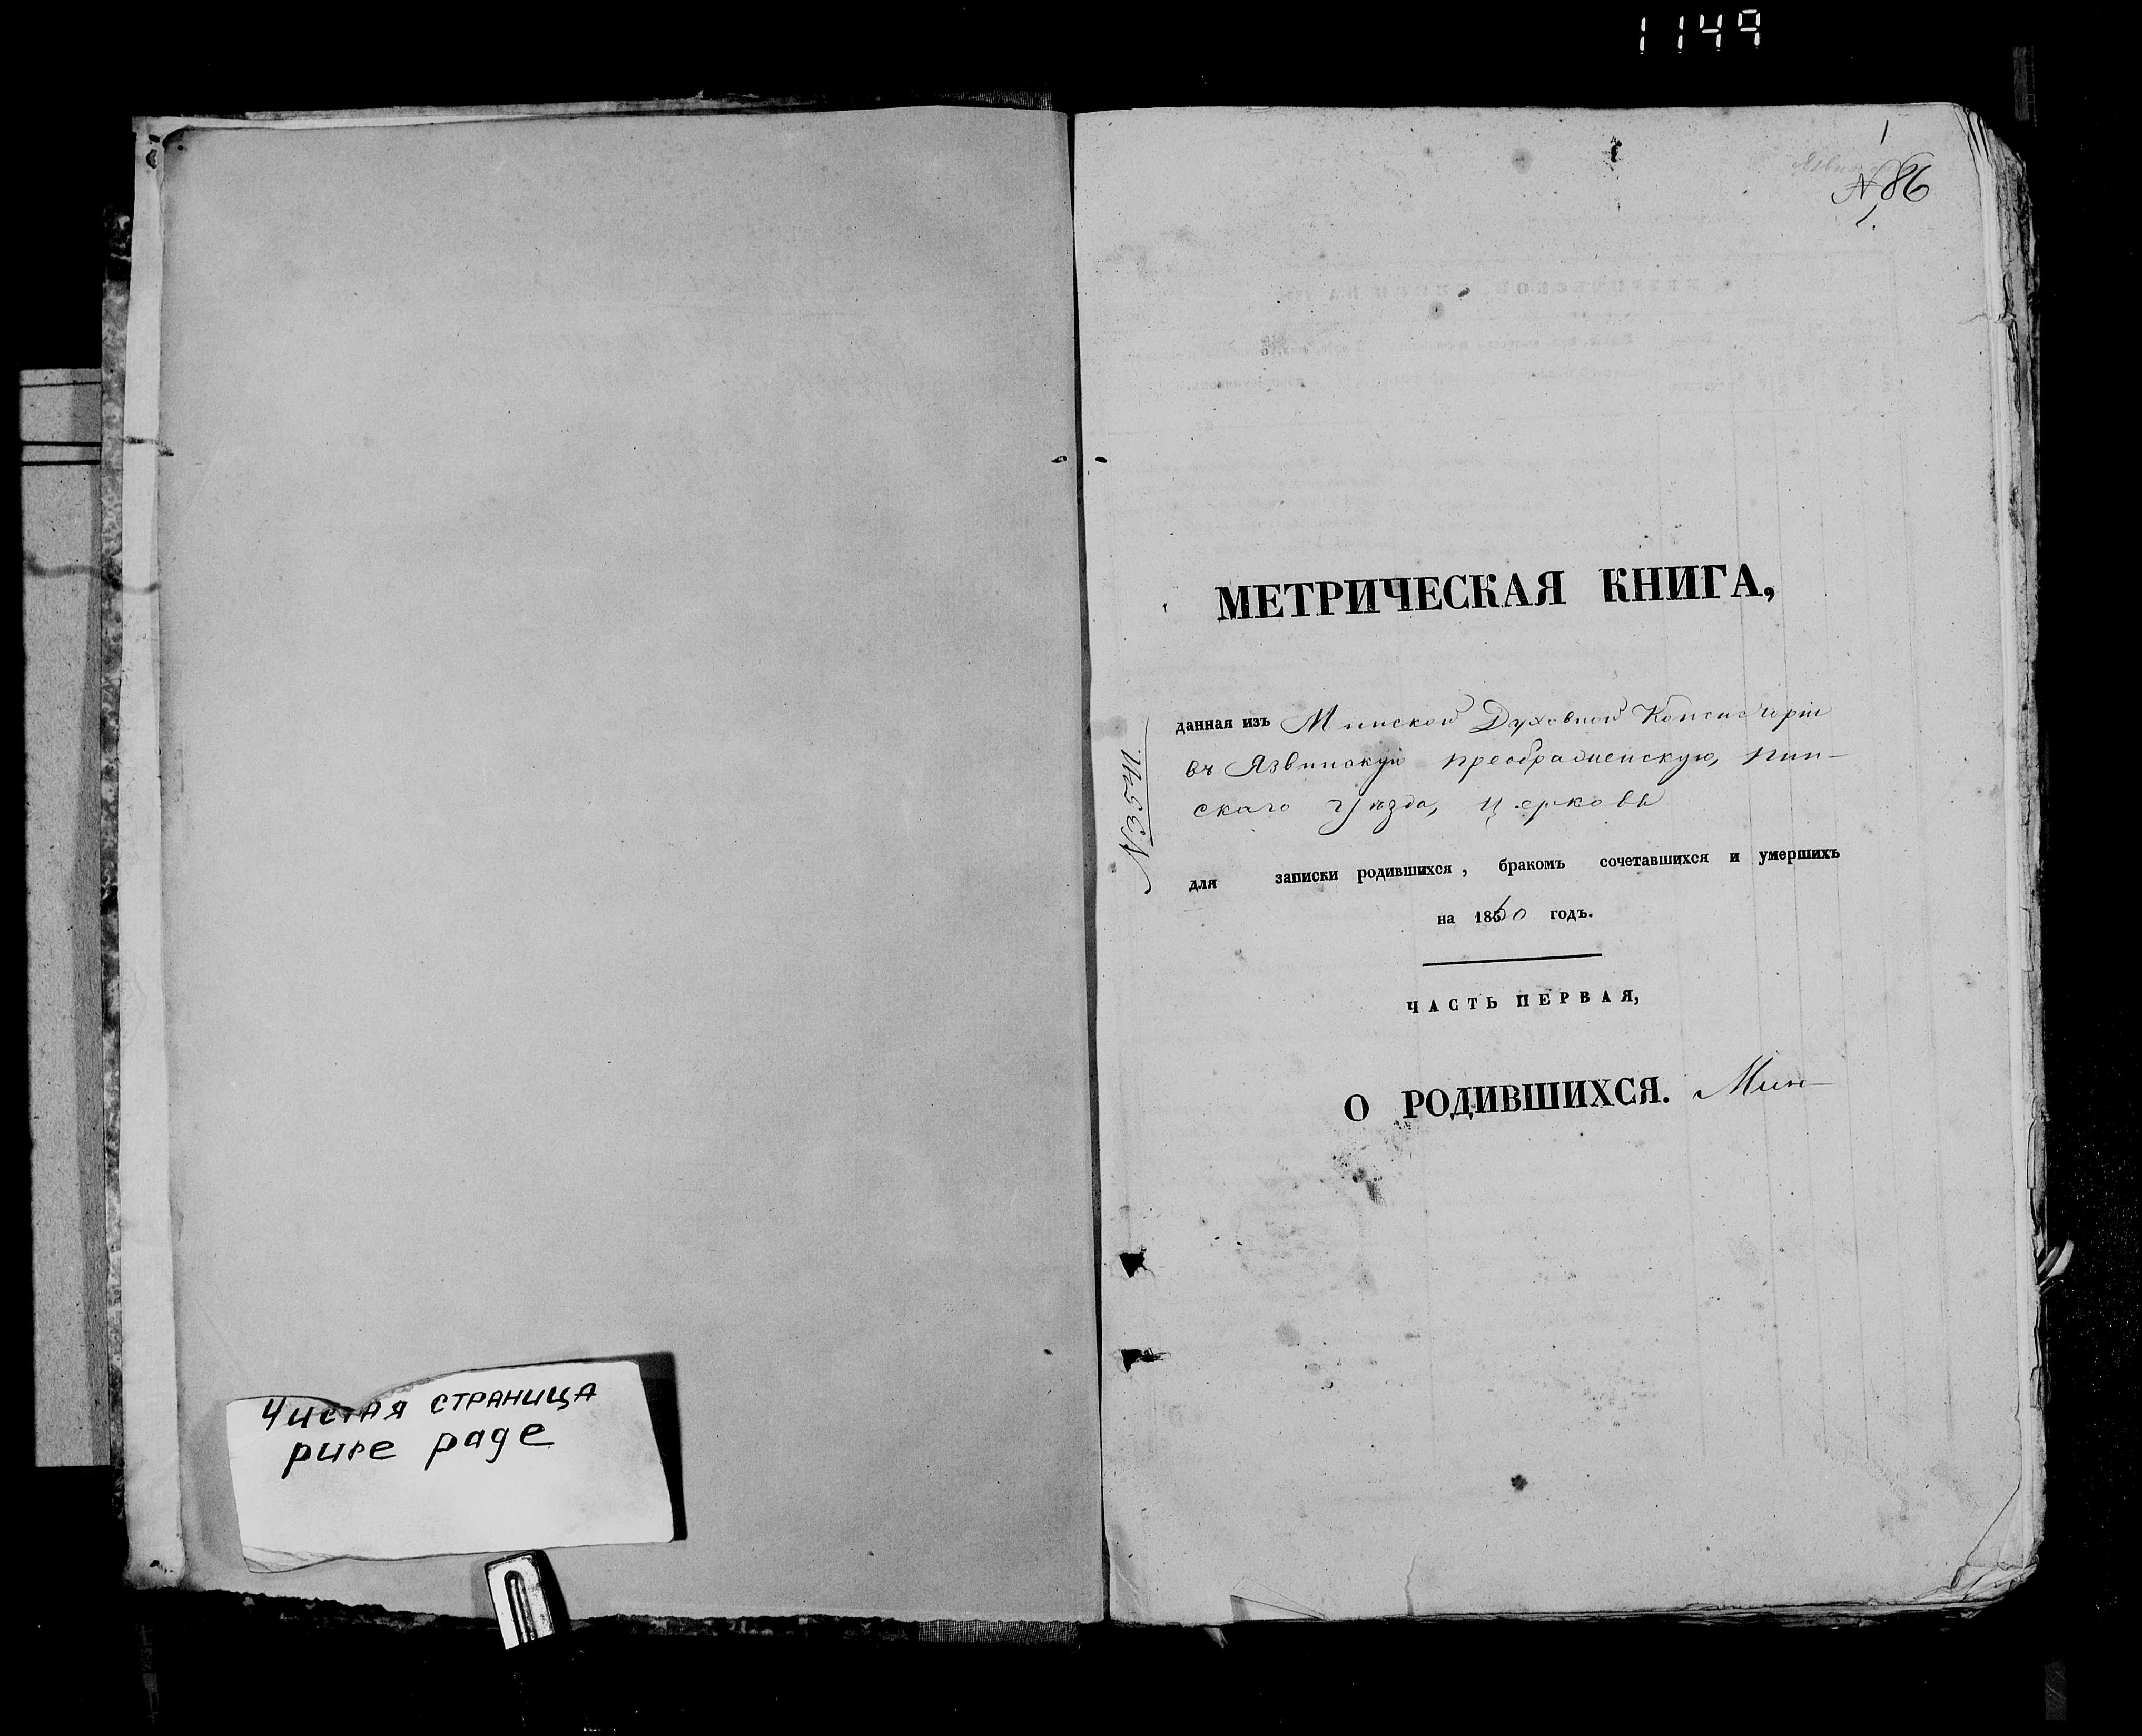 1149
Чистая страница
pure page
1
N 86
1.
МЕТРИЧЕСКАЯ КНИГА,
данная изъ Минской Духовной Консисторіи
въ Язвинскую преображенскую, пин-
скаго уѣзда, церковь
N 3541.
для записки родившихся, бракомъ сочетавшихся и умершихъ
на 1860 годъ.
ЧАСТЬ ПЕРВАЯ,
О РОДИВШИХСЯ. Мин-